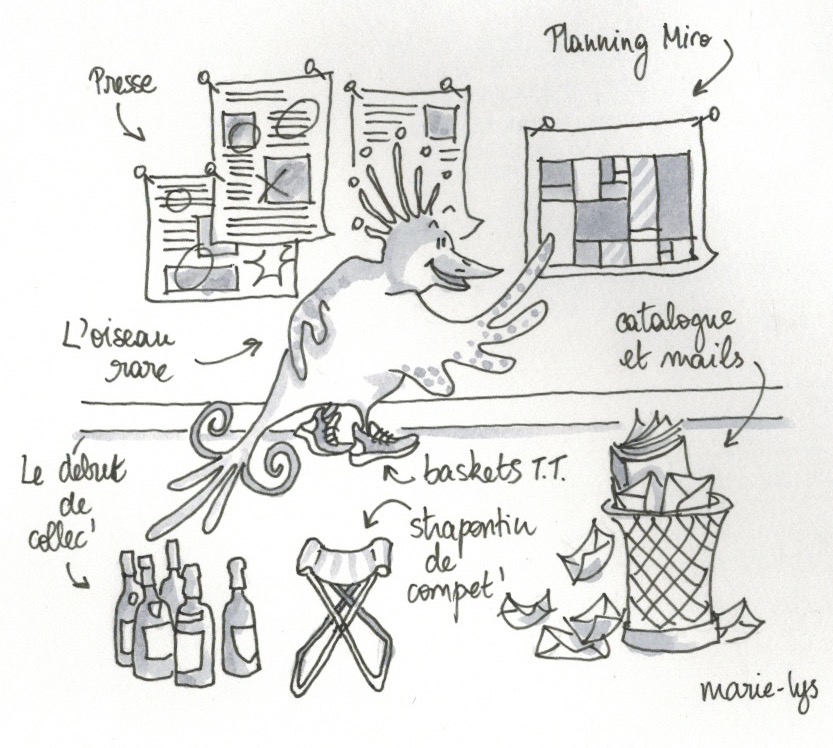 Planning Miro
Presse
L'oiseau
rare
catalogue
et mails
Le début
de
collec'
baskets T.T.
strapontin
de
compet'
marie-lys